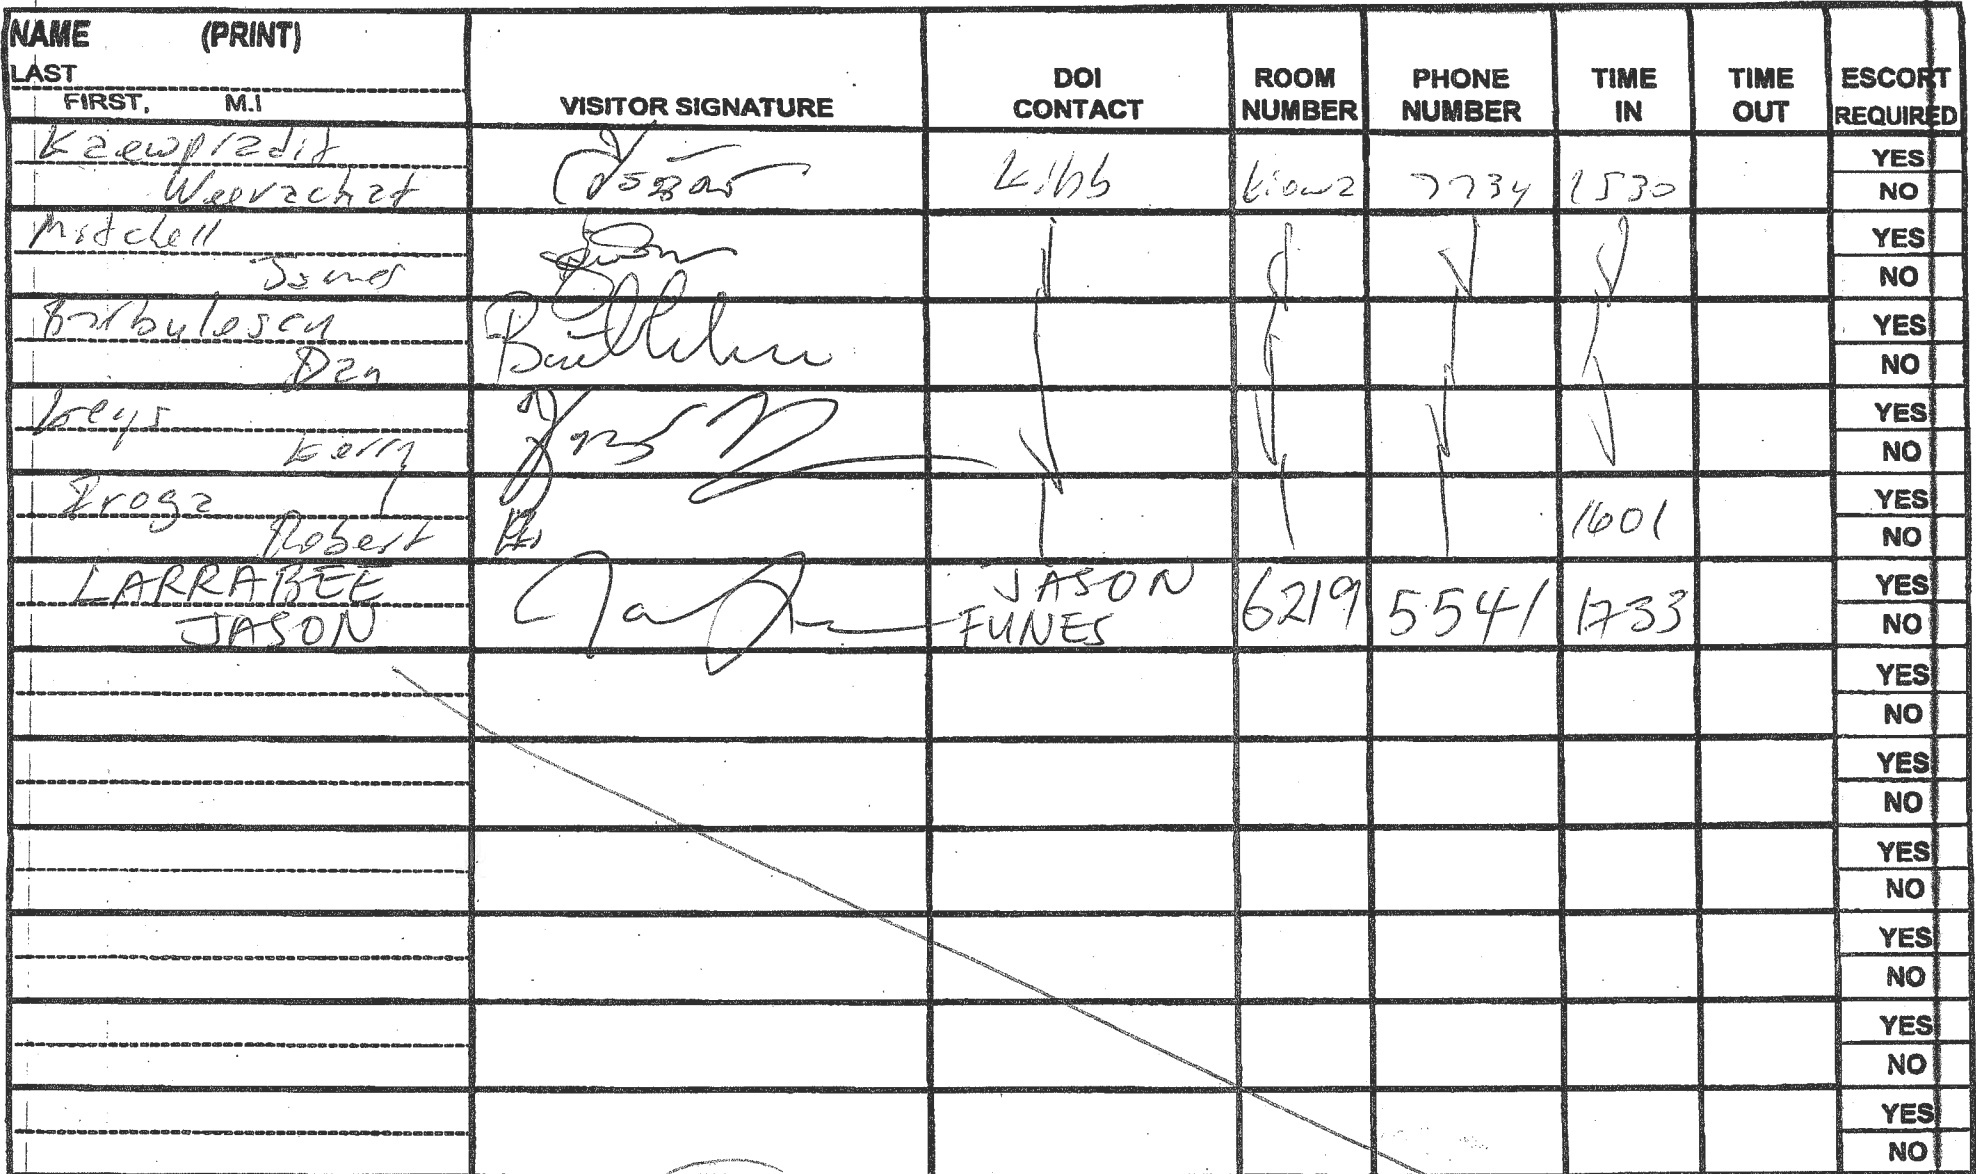 NAME (PRINT)
LAST
FIRST, M.I
VISITOR SIGNATURE
DOI
CONTACT
ROOM
NUMBER
PHONE
NUMBER
TIME
IN
TIME
OUT
ESCORT
REQUIRED
Kaewpradit
Weerachat
Kibb
Kiowa
7734
1530
YES
NO
Mitchell
James
YES
NO
Barbulescu
Dan
YES
NO
Keys
Kerry
YES
NO
Droga
Robert
1601
YES
NO
LARRABEE
JASON
JASON
FUNES
6219
5541
1733
YES
NO
YES
NO
YES
NO
YES
NO
YES
NO
YES
NO
YES
NO